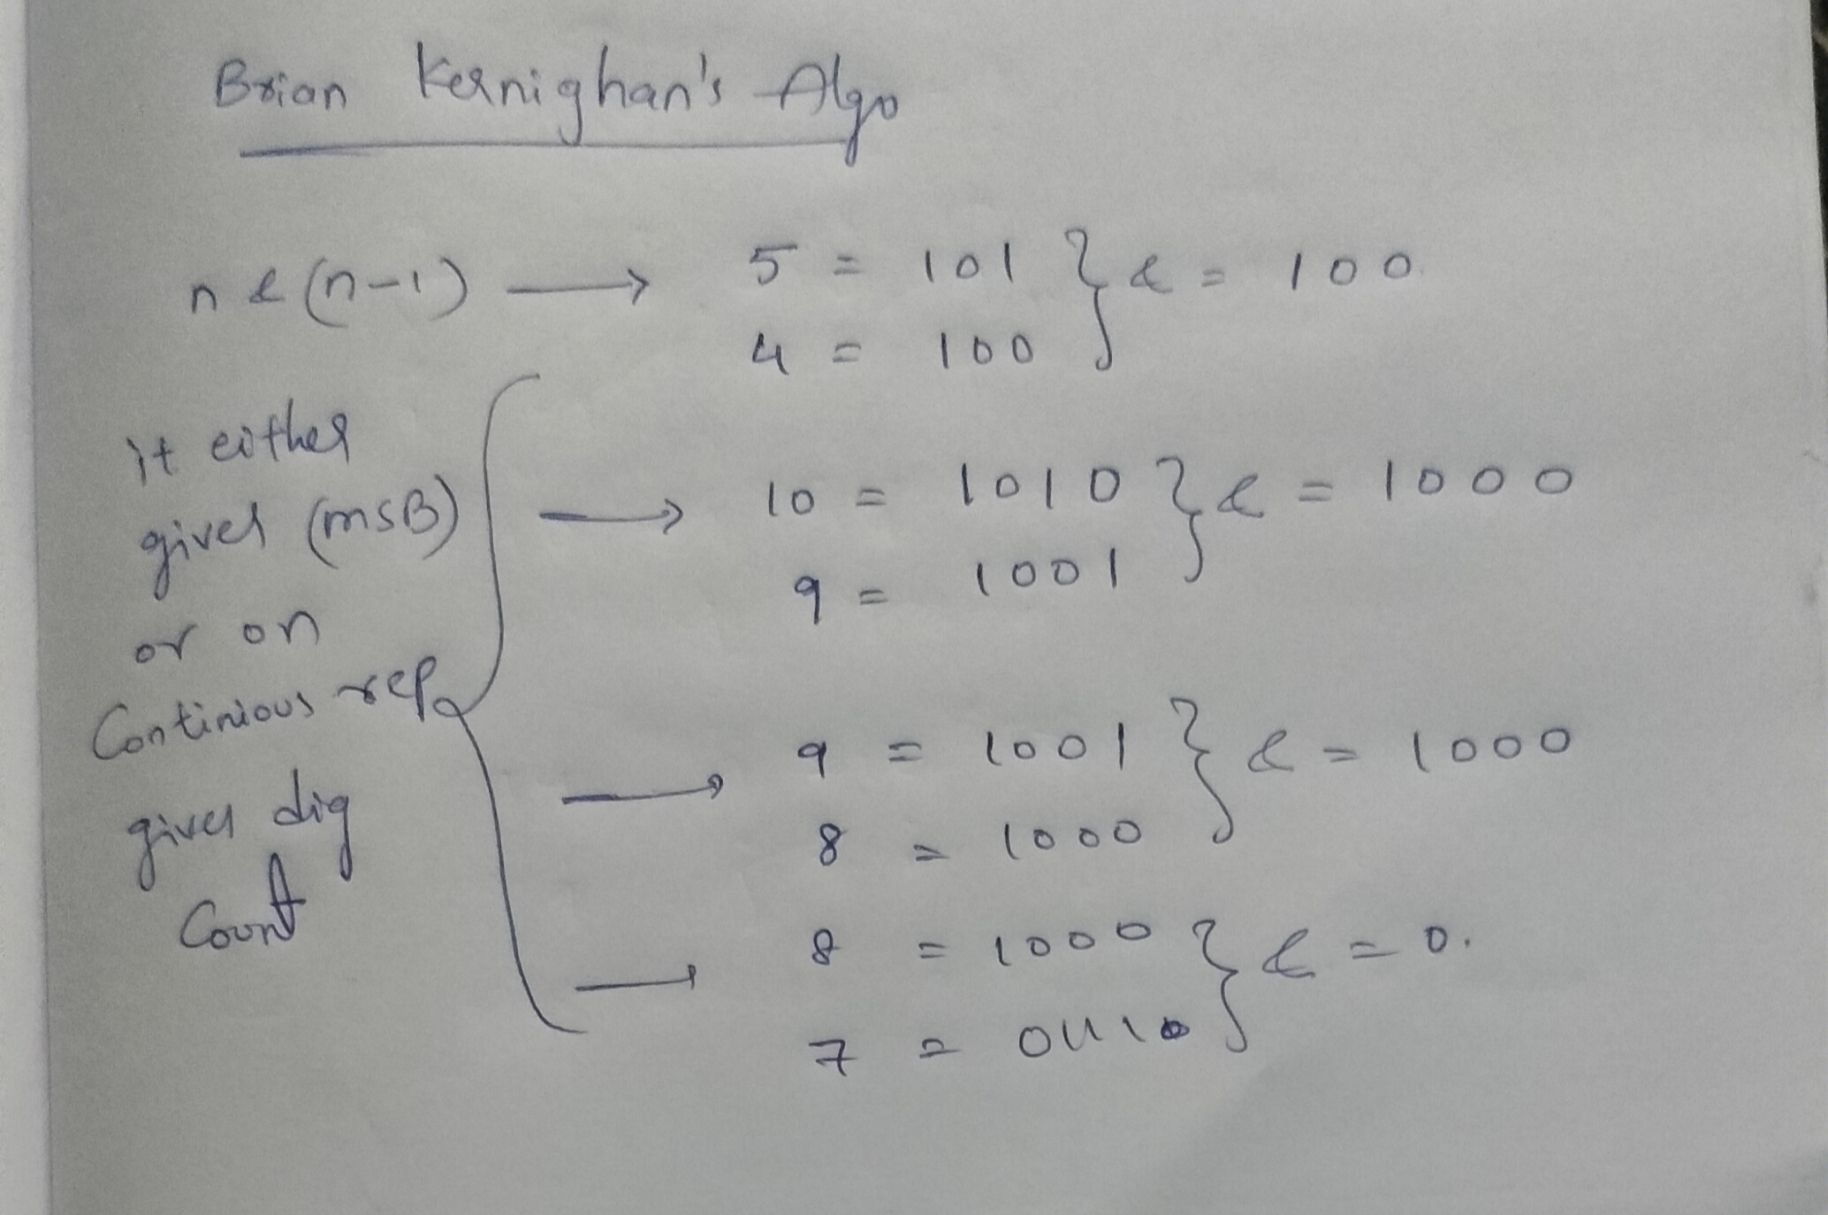 Brian Kernighan's Algo
n & (n-1) → 5 = 101 } & = 100
4 = 100
it either
gives (MSB)
or on
Continious rep
gives dig
Count
→ 10 = 1010 } & = 1000
9 = 1001
→ 9 = 1001 } & = 1000
8 = 1000
→ 8 = 1000 } & = 0.
7 =